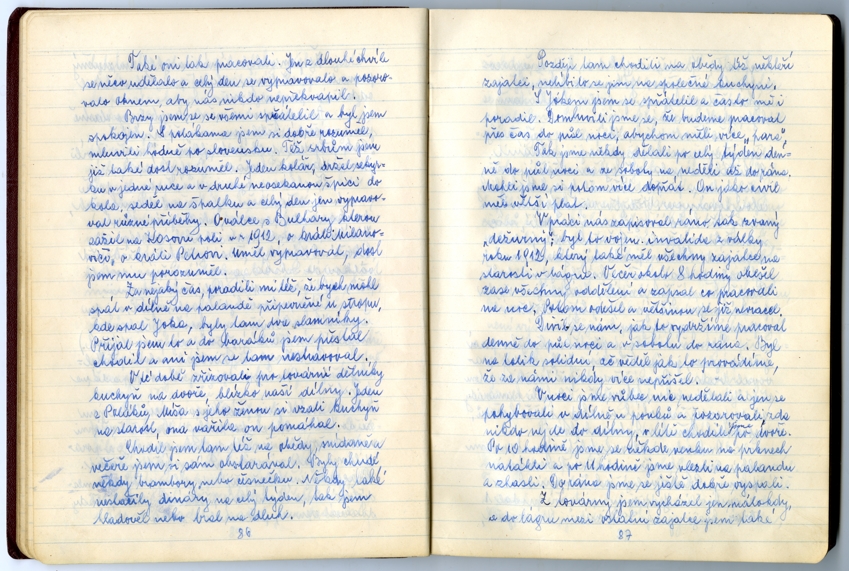 Také oni tak pracovali. Jen z dlouhé chvíle
se něco udělalo a celý den se vypravovalo a pozoro-
valo oknem, aby nás nikdo nepřekvapil!
Brzy jsem se se všemi spřátelil a byl jsem
spokojen. S polákama jsem si dobře rozuměl,
mluvili hodně po slovensku. Též srbům jsem
již také dost rozuměl. Jeden kolář, držel sekyr-
ku v jedné ruce a v druhé neosekanou špici do
kola, seděl na špalku a celý den jen vypravo-
val různé příběhy. O válce s Bulhary kterou
zažil na Kosovu poli v r. 1912, o králi Milano-
vići, o králi Petrovi, uměl vypravovat, dost
jsem mu porozuměl.
Za nějaký čas, poradili mi též, že bych mohl
spát v dílně na palandě připevněné u stropu,
kde spal Joka, byly tam dva slamníky.
Přijal jsem to a do baráků jsem přestal
chodit a ani jsem se tam nestravoval.
V té době zřizovali pro továrné dělníky
kuchyň na dvoře, blízko naší dílny. Jeden
z Poláků, Miso s jeho ženou si vzali kuchyň
na starost, ona vařila on pomáhal.
Chodil jsem tam též na obědy, snídaně a
večeře jsem si sám obstarával. Byly chudé
někdy brambory, nebo česnečku. Někdy také
nestačily dináry na celý týden, tak jsem
hladověl nebo bral na dluh.
86
Později tam chodili na obědy též někteří
zajatci, nelíbilo se jim na společné kuchyni.
S Jokem jsem se spřátelil a často mě i
poradil. Domluvili jsme se, že budeme pracovat
přes čas do půl noci, abychom měli více "para".
Tak jsme někdy dělali po celý týden den-
ně do půl noci a ze soboty na neděli až do rána.
Mohli jsme si potom více dopřát. On jako civil
měl větší plat.
V práci nás zapisoval ráno tak zvaný
"dežurný", byl to voj. invalida z války
roku 1912, který také měl všechny zajatce na
starosti v lágru. Večer okolo 8 hodiny obešel
zase všechny oddělení a zapsal co pracovali
na noc. Potom odešel a většinou se již nevracel.
Divil se nám, jak to vydržíme pracovat
denně do půl noci a v sobotu do rána. Byl
na tolik solidní, ač věděl jak to provádíme,
že za námi nikdy více nepřišel.
V noci jsme vůbec nic nedělali a jen se
pohybovali v dílně u ponků a pozorovali zda
nikdo nejde do dílny, v létě chodili po dvoře.
Po 10 hodině jsme se někde venku na prknech
natáhli a po 11 hodině jsme vlezli na palandu
a zhasli. Do rána jsme se ještě dobře vyspali.
Z továrny jsem vycházel jen málo kdy,
a do lágru mezi ostatní zajatce jsem také
87